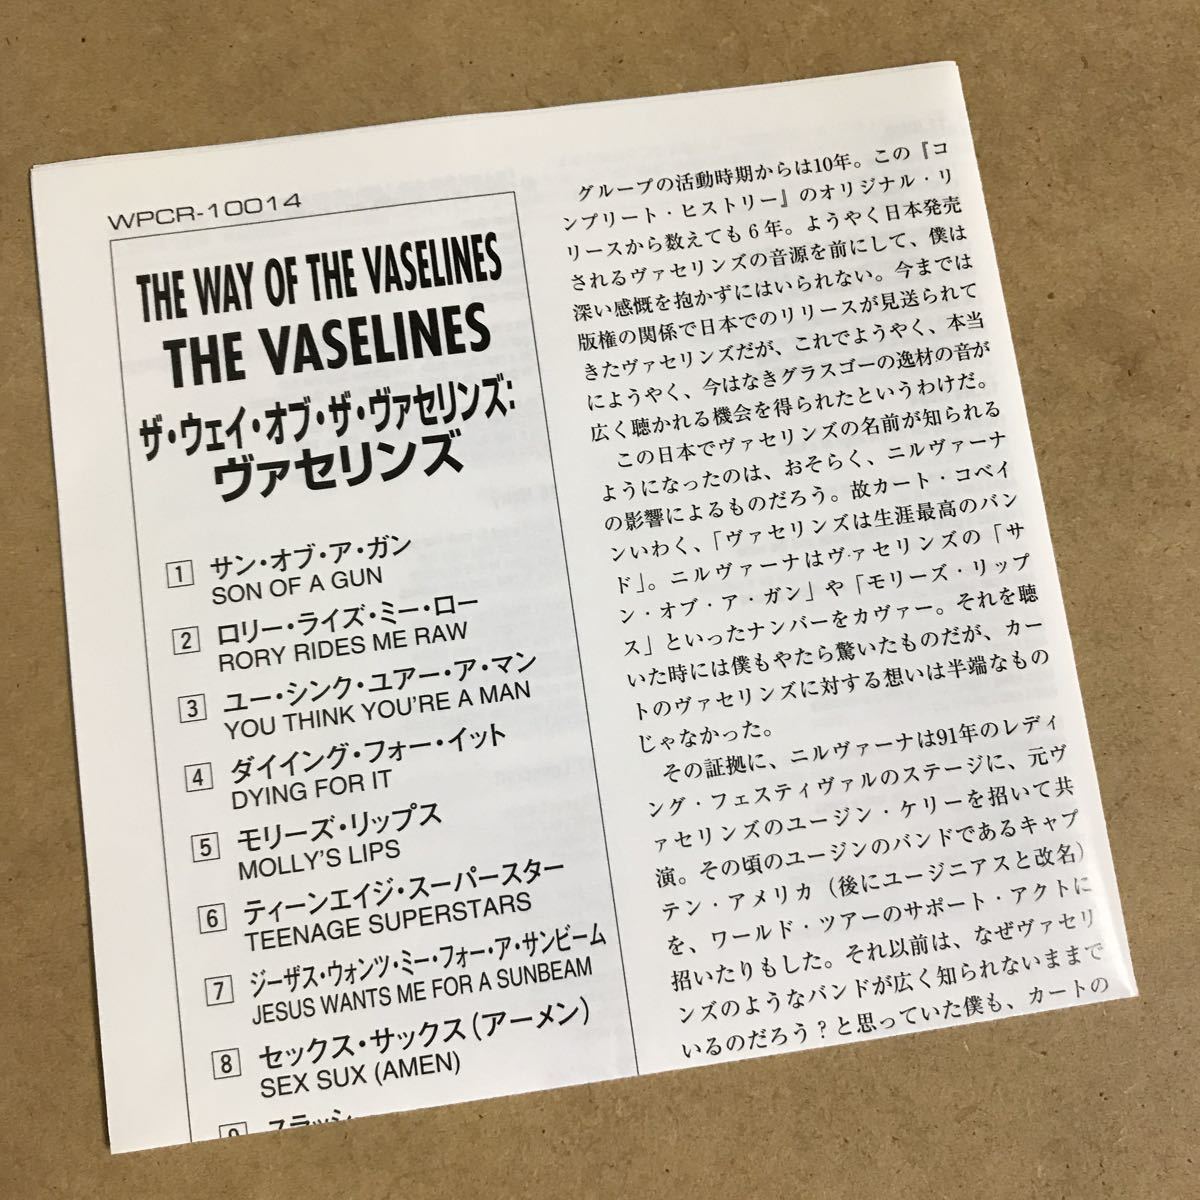 WPCR-10014
THE WAY OF THE VASELINES
THE VASELINES
ザ・ウェイ・オブ・ザ・ヴァセリンズ:
ヴァセリンズ
1 サン・オブ・ア・ガン
SON OF A GUN
2 ロリー・ライズ・ミー・ロー
RORY RIDES ME RAW
3 ユー・シンク・ユアー・ア・マン
YOU THINK YOU'RE A MAN
4 ダイイング・フォー・イット
DYING FOR IT
5 モリーズ・リップス
MOLLY'S LIPS
6 ティーンエイジ・スーパースター
TEENAGE SUPERSTARS
7 ジーザス・ウォンツ・ミー・フォー・ア・サンビーム
JESUS WANTS ME FOR A SUNBEAM
8 セックス・サックス(アーメン)
SEX SUX (AMEN)
9 スラッシ
グループの活動時期からは10年。この『コ
ンプリート・ヒストリー』のオリジナル・リ
リースから数えても6年。ようやく日本発売
されるヴァセリンズの音源を前にして、僕は
深い感慨を抱かずにはいられない。今までは
版権の関係で日本でのリリースが見送られて
きたヴァセリンズだが、これでようやく、本当
にようやく、今はなきグラスゴーの逸材の音が
広く聴かれる機会を得られたというわけだ。
この日本でヴァセリンズの名前が知られる
ようになったのは、おそらく、ニルヴァーナ
の影響によるものだろう。故カート・コベイ
ンいわく、「ヴァセリンズは生涯最高のバン
ド」。ニルヴァーナはヴァセリンズの「サ
ン・オブ・ア・ガン」や「モリーズ・リップ
ス」といったナンバーをカヴァー。それを聴
いた時には僕もやたら驚いたものだが、カー
トのヴァセリンズに対する想いは半端なもの
じゃなかった。
その証拠に、ニルヴァーナは91年のレディ
ング・フェスティヴァルのステージに、元ヴ
ァセリンズのユージン・ケリーを招いて共
演。その頃のユージンのバンドであるキャプ
テン・アメリカ(後にユージニアスと改名)
を、ワールド・ツアーのサポート・アクトに
招いたりもした。それ以前は、なぜヴァセリ
ンズのようなバンドが広く知られないままで
いるのだろう?と思っていた僕も、カートの